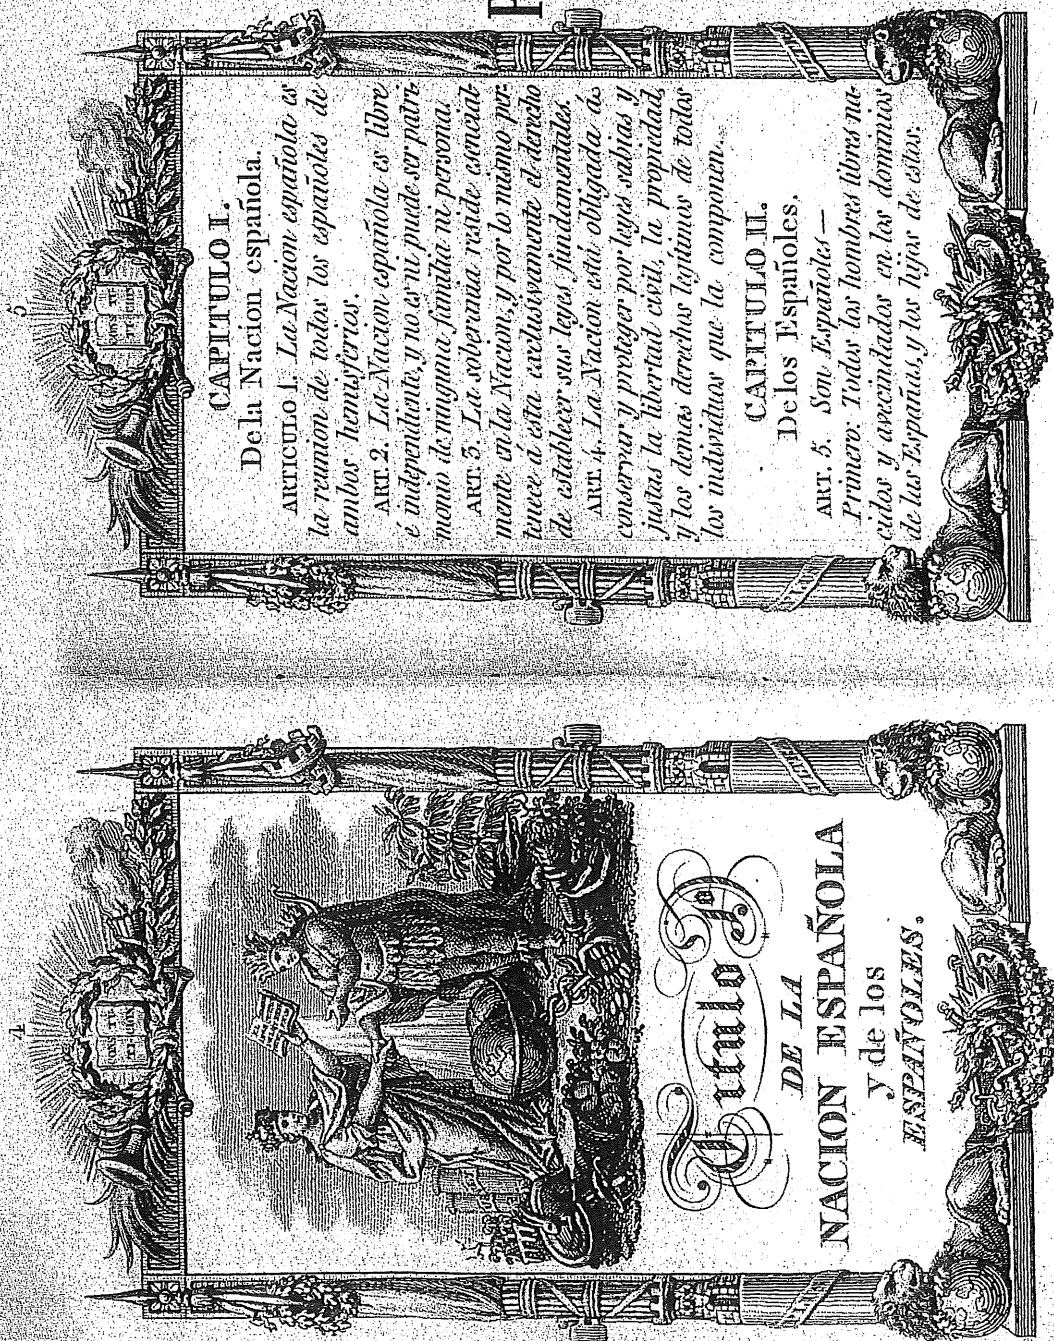 4
CONSTI
TUCION
Título I.º
DE LA
NACION ESPAÑOLA
y de los
ESPAÑOLES.
5
CAPITULO I.
De la Nacion española.
ARTICULO 1. La Nacion española es
la reunion de todos los españoles de
ambos hemisferios.
ART. 2. La Nacion española es libre
é independiente, y no es ni puede ser patri-
monio de ninguna familia ni persona.
ART. 3. La soberania reside esencial-
mente en la Nacion, y por lo mismo per-
tenece á esta exclusivamente el derecho
de establecer sus leyes fundamentales.
ART. 4. La Nacion está obligada á
conservar y proteger por leyes sabias y
justas la libertad civil, la propiedad,
y los demas derechos legítimos de todos
los individuos que la componen.
CAPITULO II.
De los Españoles.
ART. 5. Son Españoles—
Primero: Todos los hombres libres na-
cidos y avecindados en los dominios
de las Españas, y los hijos de estos.